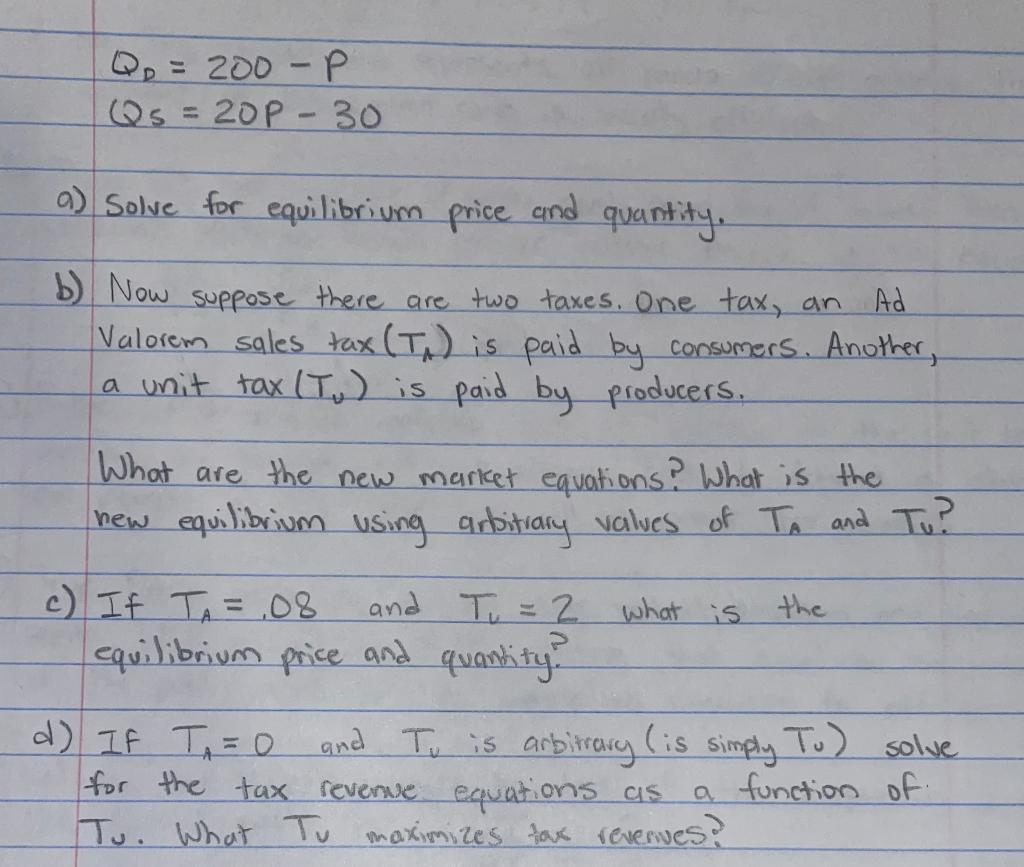 Q_D = 200 - P
Q_S = 20P - 30
a) Solve for equilibrium price and quantity.
b) Now suppose there are two taxes. One tax, an Ad
Valorem sales tax (T_A) is paid by consumers. Another,
a unit tax (T_U) is paid by producers.
What are the new market equations? What is the
new equilibrium using arbitrary values of T_A and T_U?
c) If T_A = .08 and T_U = 2 what is the
equilibrium price and quantity?
d) If T_A = 0 and T_U is arbitrary (is simply T_U) solve
for the tax revenue equations as a function of
T_U. What T_U maximizes tax revenues?